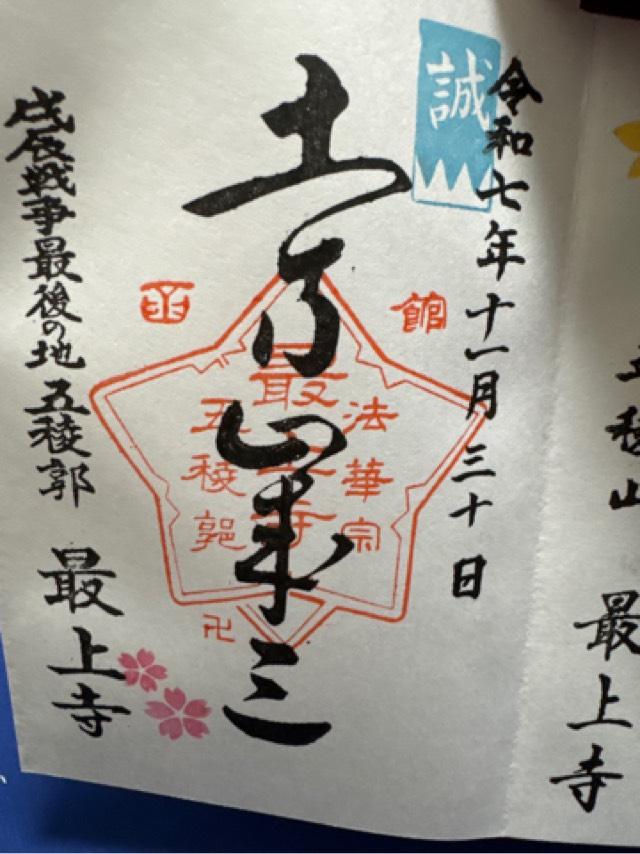 五稜山
最上寺
令和七年十一月三十日
誠
土方歳三
函館
法華宗
最上寺
五稜郭
卍
戊辰戦争最後の地 五稜郭
最上寺